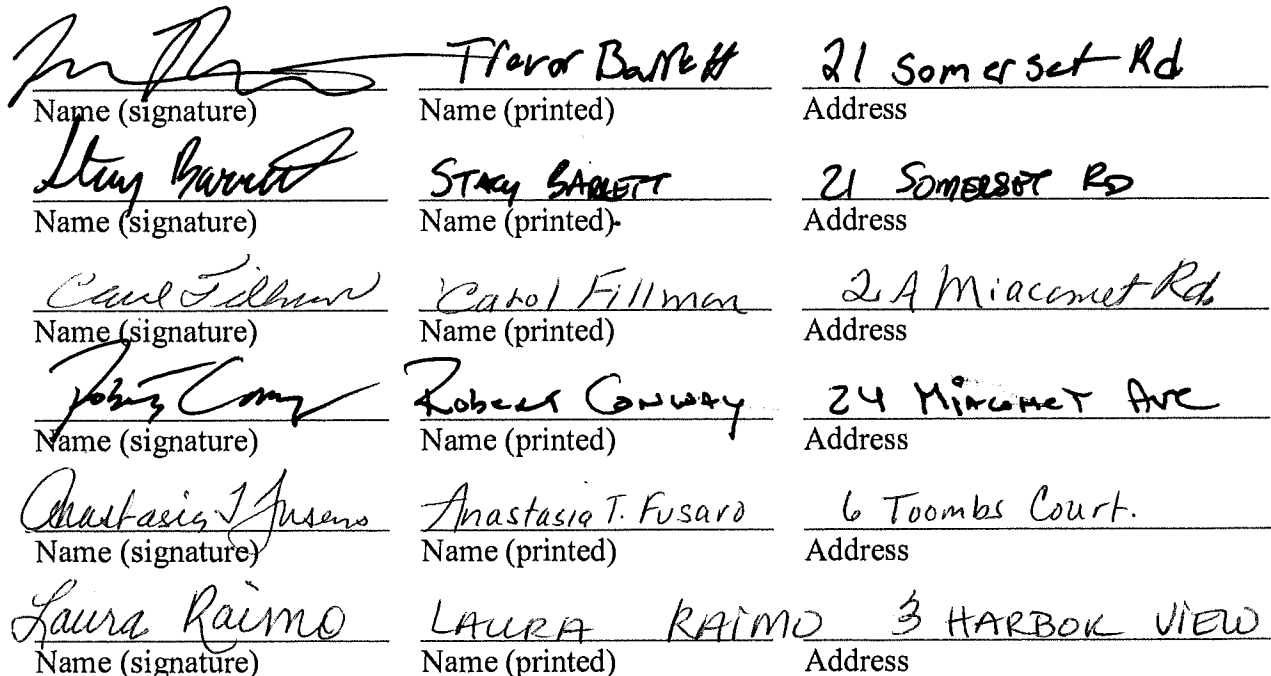 Trevor Barrett 21 Somerset Rd
Name (signature) Name (printed) Address
Stacy Barrett STACY BARRETT 21 SOMERSET RD
Name (signature) Name (printed) Address
Carol Fillman Carol Fillman 2A Miacomet Rd.
Name (signature) Name (printed) Address
Robert Conway Robert Conway 24 Miacomet Ave
Name (signature) Name (printed) Address
Anastasia T Fusaro Anastasia T. Fusaro 6 Toombs Court.
Name (signature) Name (printed) Address
Laura Raimo LAURA RAIMO 3 HARBOR VIEW
Name (signature) Name (printed) Address